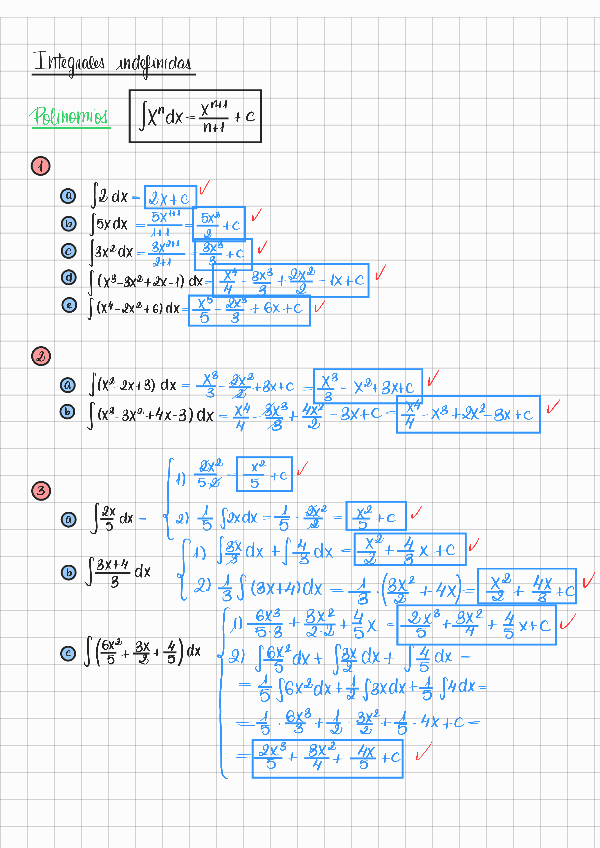 Integrales indefinidas
Polinomios ∫xⁿdx = xⁿ⁺¹/n+1 + c
1
a ∫2 dx = 2x+c ✓
b ∫5x dx = 5x¹⁺¹/1+1 = 5x²/2 + c ✓
c ∫3x² dx = 3x²⁺¹/2+1 = 3x³/3 + c ✓
d ∫(x³-3x²+2x-1) dx = x⁴/4 - 3x³/3 + 2x²/2 - 1x + c ✓
e ∫(x⁴-2x²+6) dx = x⁵/5 - 2x³/3 + 6x + c ✓
2
a ∫(x² 2x+3) dx = x³/3 - 2x²/2 + 3x + c = x³/3 - x² + 3x + c ✓
b ∫(x³ 3x²+4x-3) dx = x⁴/4 - 3x³/3 + 4x²/2 - 3x + c = x⁴/4 - x³ + 2x² - 3x + c ✓
3
a ∫2x/5 dx =
1) 2x²/5·2 = x²/5 + c ✓
2) 1/5 ∫2x dx = 1/5 · 2x²/2 = x²/5 + c ✓
b ∫3x+4/3 dx
1) ∫3x/3 dx + ∫4/3 dx = x²/2 + 4/3 x + c ✓
2) 1/3 ∫(3x+4) dx = 1/3 · (3x²/2 + 4x) = x²/2 + 4x/3 + c ✓
c ∫(6x²/5 + 3x/2 + 4/5) dx
1) 6x³/5·3 + 3x²/2·2 + 4/5 x = 2x³/5 + 3x²/4 + 4/5 x + c ✓
2) ∫6x²/5 dx + ∫3x/2 dx + ∫4/5 dx =
= 1/5 ∫6x² dx + 1/2 ∫3x dx + 1/5 ∫4 dx =
= 1/5 · 6x³/3 + 1/2 · 3x²/2 + 1/5 · 4x + c =
= 2x³/5 + 3x²/4 + 4x/5 + c ✓